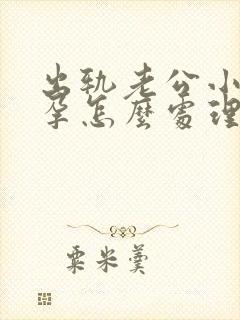 出軌老公小
孕怎麼處理
粟米羹